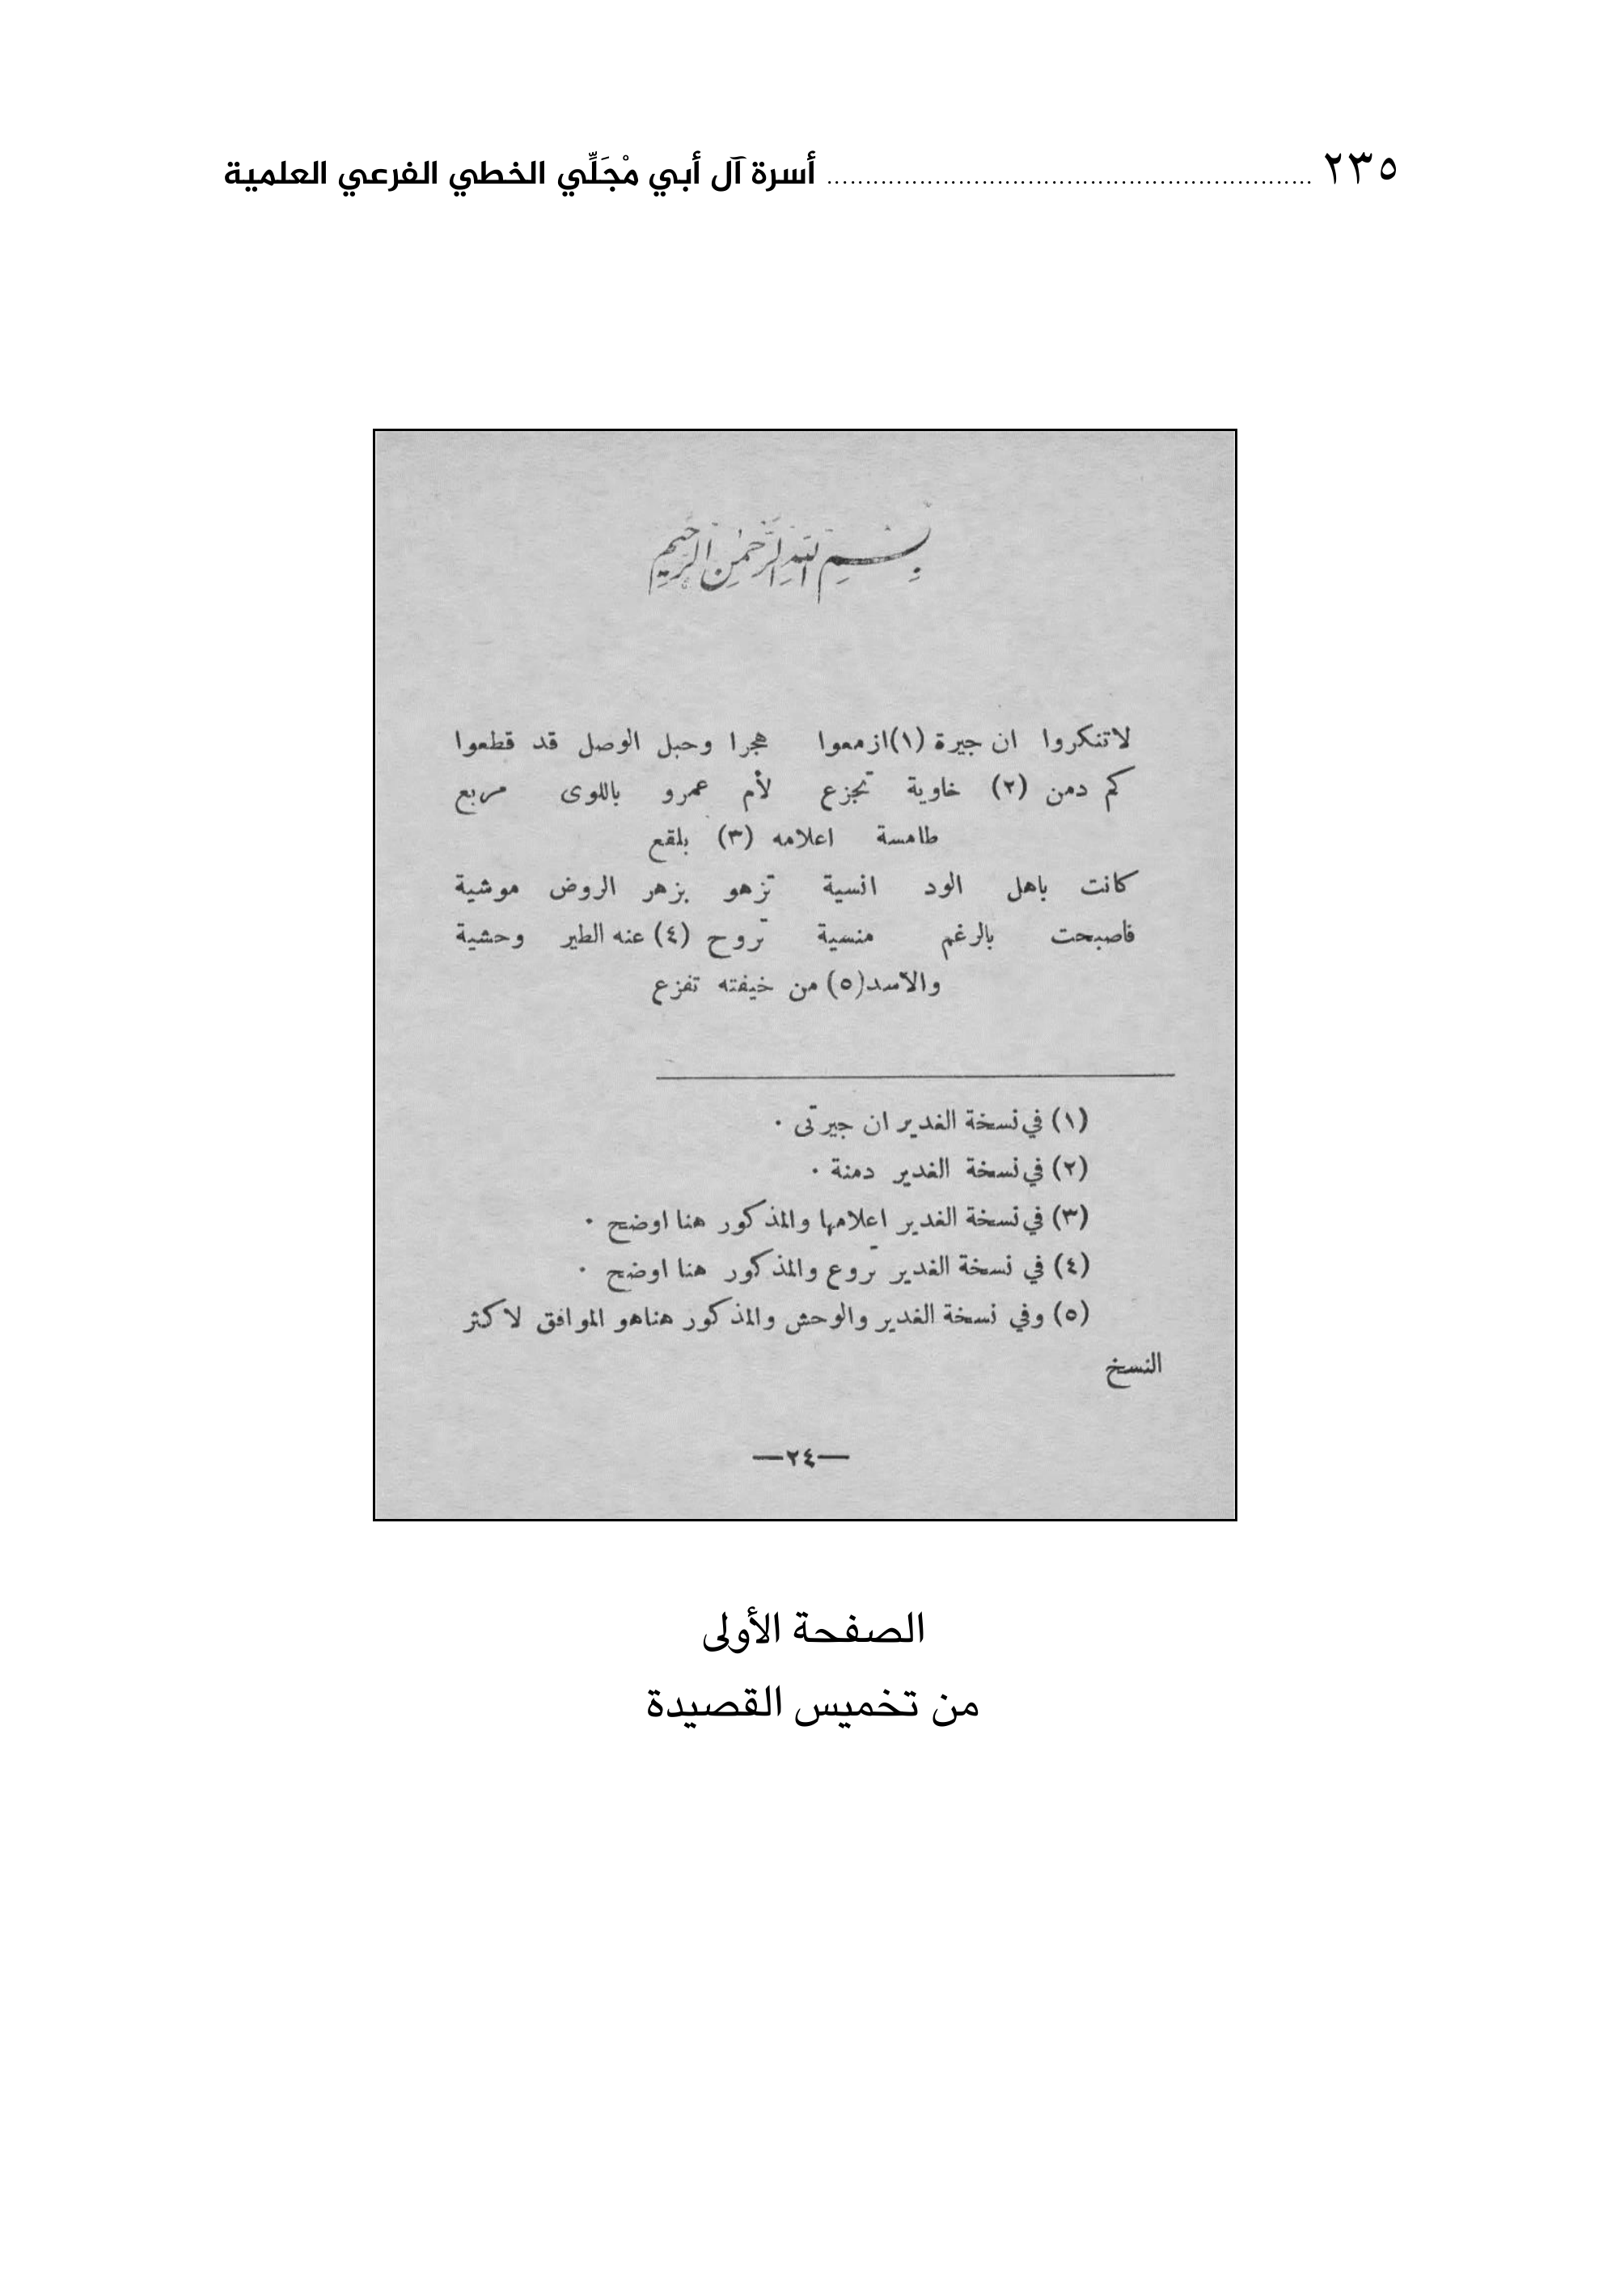 ٢٣٥ ................................................................ أسرة آل أبي مْجَلِّي الخطي الفرعي العلمية
بِسْمِ اللهِ الرَّحْمٰنِ الرَّحِيمِ
لاتنكروا ان جيرة (١) ازمعوا هجرا وحبل الوصل قد قطعوا
كم دمن (٢) خاوية تجزع لأم عمرو باللوى مربع
طامسة اعلامه (٣) بلقع
كانت باهل الود انسية تزهو بزهر الروض موشية
فاصبحت بالرغم منسية تروح (٤) عنه الطير وحشية
والاسد (٥) من خيفته تفزع
(١) في نسخة الغدير ان جيرتى .
(٢) في نسخة الغدير دمنة .
(٣) في نسخة الغدير اعلامها والمذكور هنا اوضح .
(٤) في نسخة الغدير تروع والمذكور هنا اوضح .
(٥) وفي نسخة الغدير والوحش والمذكور هناهو الموافق لاكثر
النسخ
—٢٤—
الصفحة الأولى
من تخميس القصيدة